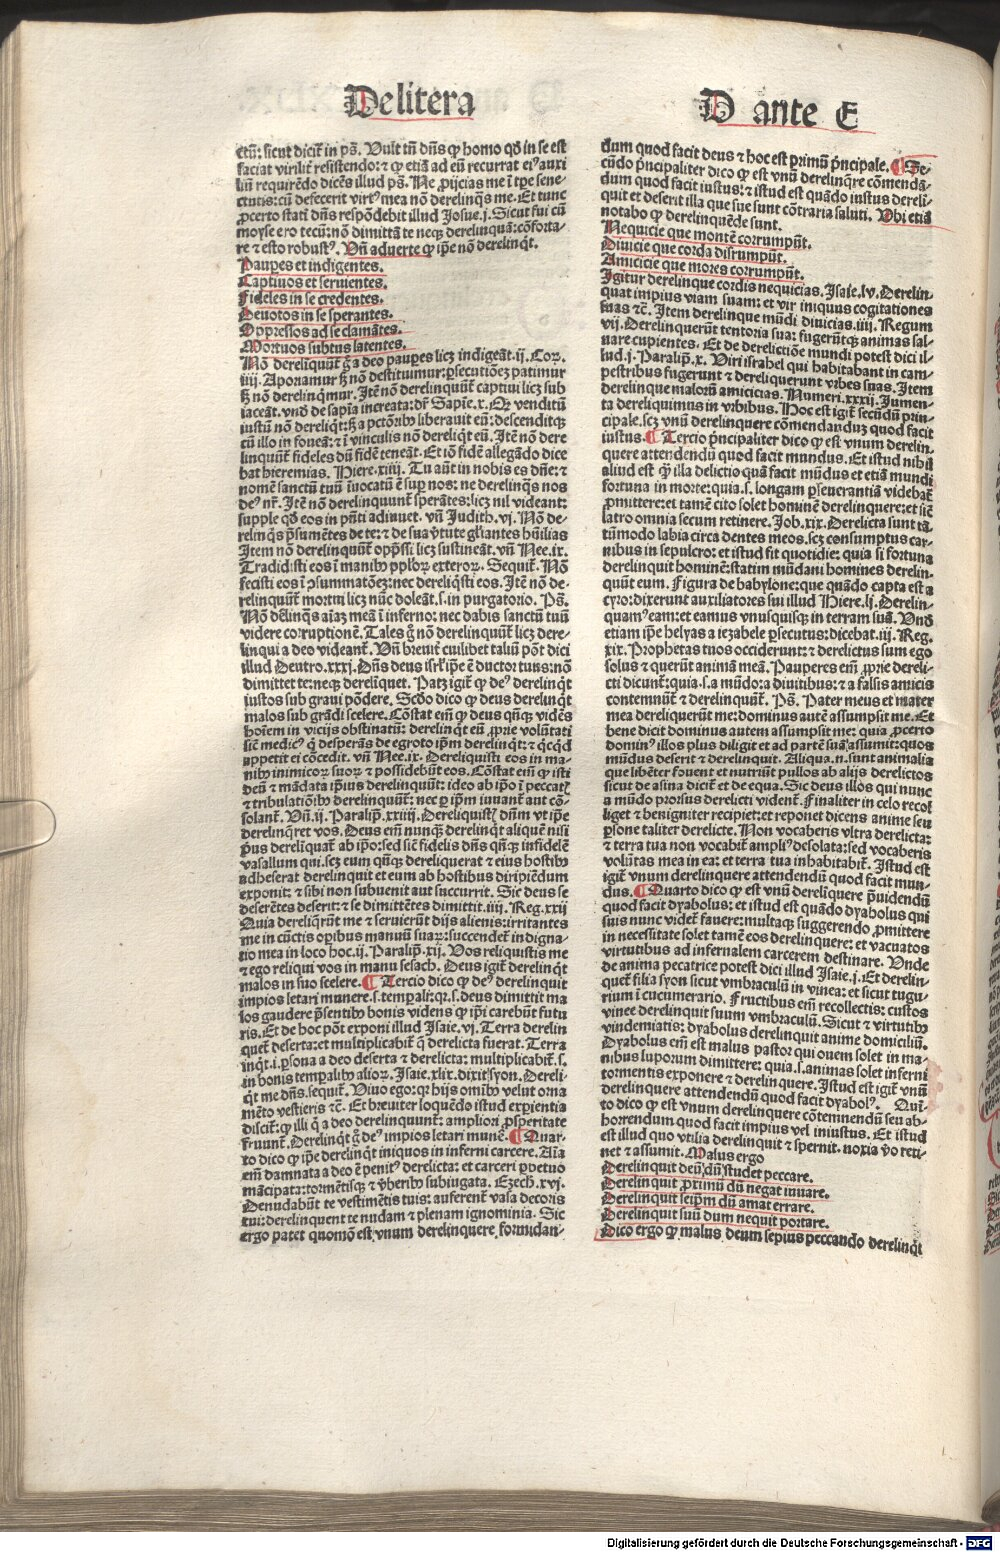 De litera
D ante E
ctū: sicut dicit̄ in p̄s. Vult tn̄ dn̄s ꝙ homo qd̓ in se est
faciat virilit̓ resistendo: ⁊ ꝙ etiā ad eū recurrat ei⁹ auxi
liū requirēdo dicēs illud p̄s. Ne ꝓijcias me ī tpe sene-
ctutis: cū defecerit virt⁹ mea nō derelinq̄s me. Et tunc
ꝓcerto statī dn̄s respōdebit illud Josue.j. Sicut fui cū
moyse ero tecū: nō dimittā te neqꝫ derelinquā: cōforta-
re ⁊ esto robust⁹. Vn̄ aduerte ꝙ ip̄e nō derelinq̄t.
Paupes et indigentes.
Captiuos et seruientes.
Fideles in se credentes.
Deuotos in se sperantes.
Oppressos ad se clamātes.
Mortuos subtus latentes.
Nō dereliquūt̄ g̊ a deo paupes licꝫ indigeāt.ij. Cor.
iiij. Aporiamur sꝫ nō destituimur: ꝑsecutiōeꝫ patimur
sꝫ nō derelinq̄mur. Itē nō derelinquūt̄ captiui licꝫ sub
iaceāt. vnd̓ de sapīa increata: dr̄ Sapīe.x. Hec venditū
iustū nō dereliq̄t: sꝫ a pctōribꝰ liberauit eū: descenditqꝫ
cū illo in foueā: ⁊ ī vinculis nō dereliq̄t eū. Itē nō dere
linquūt̄ fideles dū fidē teneāt. Et iō fidē allegādo dice
bat hieremias. Hiere.xiiij. Tu aūt in nobis es dn̄e: ⁊
nomē sanctū tuū īuocatū ē sup nos: ne derelinq̄s nos
de⁹ nr̄. Itē nō derelinquunt̄ sperātes: licꝫ nil videant:
supple qd̓ eos in pn̄ti adiuuet. vn̄ Judith.vj. Nō de-
relinq̄s p̄sumētes de te: ⁊ de sua v̓tute gl̓iantes hūilias
Item nō derelinquūt̄ opp̄ssi: licꝫ sustineāt. vn̄ Nee.ix.
Tradidisti eos ī manibꝰ pplorꝝ exterorꝝ. Sequit̄. Nō
fecisti eos ī ꝯsummatōeꝫ: nec dereliq̄sti eos. Itē nō de-
relinquūt̄ mortui licꝫ nūc doleāt.s.in purgatorio. P̄s.
Nō d̓elinq̄s aīaꝫ meā ī inferno: nec dabis sanctū tuū
videre corruptionē. Tales g̊ nō derelinquūt̄ licꝫ dere-
linqui a deo videant̄. Vn̄ breuit̓ cuilibet taliū pōt dici
illud Deutro.xxxj. Dn̄s deus isrl̓ ip̄e ē ductor tuus: nō
dimittet te: neqꝫ derelīquet. Patꝫ igit̄ ꝙ de⁹ derelinq̄t
iustos sub graui pōdere. Scd̓o dico ꝙ deus derelinq̄t
malos sub grādi scelere. Cōstat eīm ꝙ deus qn̄qꝫ vidēs
hoīem in vicijs obstinatū: derelinq̄t eū ꝓprie volūtati
sic̄ medic⁹ q̄ desperās de egroto ip̄m derelinq̄t: ⁊ q̄cq̄d
appetit ei cōcedit. vn̄ Nee.ix. Dereliquisti eos in ma-
nibꝰ inimicorꝝ suorꝝ ⁊ possidebūt eos. Cōstat eīm ꝙ isti
deū ⁊ mādata ip̄ius derelinquūt: ideo ab ip̄o ī peccatꝭ
⁊ tribulatiōibꝰ derelinquūt̄: nec ꝑ ip̄m iuuant̄ aut cō-
solant̄. Vn̄.ij. Paralip̄.xxiiij. Dereliquistꝭ dn̄m vt ip̄e
derelinq̄ret vos. Deus eīm nunqꝫ derelinq̄t aliquē nisi
p̄us derelīquat̄ ab ip̄o: sed sic̄ fidelis dn̄s qn̄qꝫ infidelē
vasallum qui.scꝫ eum qn̄qꝫ dereliquerat ⁊ eius hostibꝰ
adheserat derelinquit et eum ab hostibus diripiēdum
exponit: ⁊ sibi non subuenit aut succurrit. Sic deus se
deserētes deserit: ⁊ se dimittētes dimittit.iiij. Reg.xxij
Quia dereliq̄rūt me ⁊ seruierūt dijs alienis: irritantes
me in cūctis oꝑibus manuū suarꝝ: succendet̄ indigna-
tio mea in loco hoc.ij. Paralip̄.xij. Vos reliquistis me
⁊ ego reliqui vos in manu sesach. Deus igit̄ derelinq̄t
malos in suo scelere. ¶ Tercio dico ꝙ de⁹ derelinquit
impios letari munere.s.tempali: qꝛ.s.deus dimittit ma
los gaudere p̄sentibꝰ bonis videns ꝙ ip̄i carebūt futu
ris. Et de hoc pōt exponi illud Isaie.vj. Terra derelin
quet̄ deserta: et multiplicabit̄ q̄ derelicta fuerat. Terra
inq̄t.i. ꝑsona a deo deserta ⁊ derelicta: multiplicabit̄.s.
in bonis tempalibꝰ aliorꝝ. Isaie.xlix. dixit syon. Dereli-
q̄t me dn̄s. sequit̄. Viuo ego: qꝛ hijs omībꝰ velut orna
mēto vestieris ⁊c̄. Et breuiter loquēdo istud exꝑientia
discit̄: ꝙ illi q̄ a deo derelinquunt̄: ampliori ꝓsperitate
fruunt̄. Derelinq̄t g̊ de⁹ impios letari munē. ¶ Quar-
to dico ꝙ ip̄e derelinq̄t iniquos in inferni carcere. Aīa
eīm damnata a deo ē penit⁹ derelicta: et carceri ꝑpetuo
mācipata: tormētisqꝫ ⁊ v̓beribꝰ subiugata. Ezech.xvj.
Denudabūt te vestimētis tuis: auferent̄ vasa decoris
tui: derelinquent te nudam ⁊ plenam ignominia. Sic
ergo patet quomō est vnum derelinquere formidan-
dum quod facit deus ⁊ hoc est primū p̄ncipale. ¶ Se-
cūdo p̄ncipaliter dico ꝙ est vnū derelinq̄re cōmendā-
dum quod facit iustus: ⁊ istud est quādo iustus dereli-
quit et deserit illa que sue sunt cōtraria saluti. Vbi etiā
notabo ꝙ derelinquēde sunt.
Nequicie que montē corrumpūt.
Diuicie que corda disrumpūt.
Amicicie que mores corrumpūt.
Igitur derelinque cordis nequicias. Isaie.lv. Derelin-
quat impius viam suam: et vir iniquus cogitationes
suas ⁊c̄. Item derelinque mūdi diuicias.iiij. Regum
vij. Derelinquerūt tentoria sua: fugerūtqꝫ animas sal-
uare cupientes. Et de derelictiōe mundi potest dici il-
lud.j. Paralip̄.x. Viri israhel qui habitabant in cam-
pestribus fugerunt ⁊ dereliquerunt vrbes suas. Item
derelinque malorū amicicias. Numeri.xxxij. Jumen-
ta dereliquimus in vrbibus. Hoc est igit̄ secūdū prin-
cipale.scꝫ vnū derelinquere cōmendanduꝫ quod facit
iustus. ¶ Tercio p̄ncipaliter dico ꝙ est vnum derelin-
quere attendendū quod facit mundus. Et istud nihil
aliud est qꝫ illa delictio quā facit mūdus et etiā mundi
fortuna in morte: quia.s. longam ꝑseuerantiā videbat̄
ꝓmittere: et tamē cito solet hominē derelinquere: et sic̄
latro omnia secum retinere. Job.xix. Derelicta sunt tā
tūmodo labia circa dentes meos.scꝫ consumptus car-
nibus in sepulcro: et istud fit quotidie: quia si fortuna
derelinquit hominē: statim mūdani homines derelin-
quūt eum. Figura de babylone: que quādo capta est a
cyro: dixerunt auxiliatores sui illud Hiere.lj. Derelin-
quam⁹ eam: et eamus vnusquisqꝫ in terram suā. Vnd̓
etiam ip̄e helyas a iezabele ꝑsecutus: dicebat.iij. Reg.
xix. Prophetas tuos occiderunt: ⁊ derelictus sum ego
solus ⁊ querūt animā meā. Pauperes eīm ꝓprie dereli-
cti dicunt̄: quia.s.a mūdo: a diuitibus: ⁊ a falsis amicis
contemnūt̄ ⁊ derelinquūt̄. P̄s. Pater meus et mater
mea dereliquerūt me: dominus autē assumpsit me. Et
bene dicit dominus autem assumpsit me: quia ꝓcerto
domin⁹ illos plus diligit et ad partē suā assumit: quos
mūdus deserit ⁊ derelinquit. Aliqua.n.sunt animalia
que libēter fouent et nutriūt pullos ab alijs derelictos
sicut de asina dicit̄ et de equa. Sic deus illos qui nunc
a mūdo prorsus derelicti vident̄. Finaliter in celo recol
liget ⁊ benigniter recipiet: et reponet dicens anime seu
ꝑsone taliter derelicte. Non vocaberis vltra derelicta:
⁊ terra tua non vocabit̄ ampli⁹ desolata: sed vocaberis
volūtas mea in ea: et terra tua inhabitabit̄. Istud est
igit̄ vnum derelinquere attendendū quod facit mun-
dus. ¶ Quarto dico ꝙ est vnū derelīquere p̄uidendū
quod facit dyabolus: et istud est quādo dyabolus qui
suis nunc videt̄ fauere: multaqꝫ suggerendo ꝓmittere
in necessitate solet tamē eos derelinquere: et vacuatos
virtutibus ad infernalem carcerem destinare. Vnde
de anima peccatrice potest dici illud Isaie.j. Et derelin-
quet̄ filia syon sicut vmbraculū in vinea: et sicut tugu-
rium ī cucumerario. Fructibus eīm recollectis: custos
vinee derelinquit suum vmbraculū. Sicut ⁊ virtutibꝰ
vindemiatis: dyabolus derelinquit anime domiciliū.
Dyabolus eīm est malus pastor qui ouem solet in ma-
nibus luporum dimittere: quia.s.animas solet inferni
tormentis exponere ⁊ derelinquere. Istud est igit̄ vnū
derelinquere attendendū quod facit dyabol⁹. Quī-
to dico ꝙ est vnum derelinquere cōtemnendū seu ab-
horrendum quod facit impius vel iniustus. Et istud
est illud quo vtilia derelinquit ⁊ spernit. noxia v̓o reti-
net ⁊ assumit. Malus ergo
Derelinquit deū: dū studet peccare.
Derelinquit ꝓximū dū negat iuuare.
Derelinquit seip̄m dū amat errare.
Derelinquit suū dum nequit portare.
Dico ergo ꝙ malus deum sepius peccando derelinq̄t
Digitalisierung gefördert durch die Deutsche Forschungsgemeinschaft - DFG